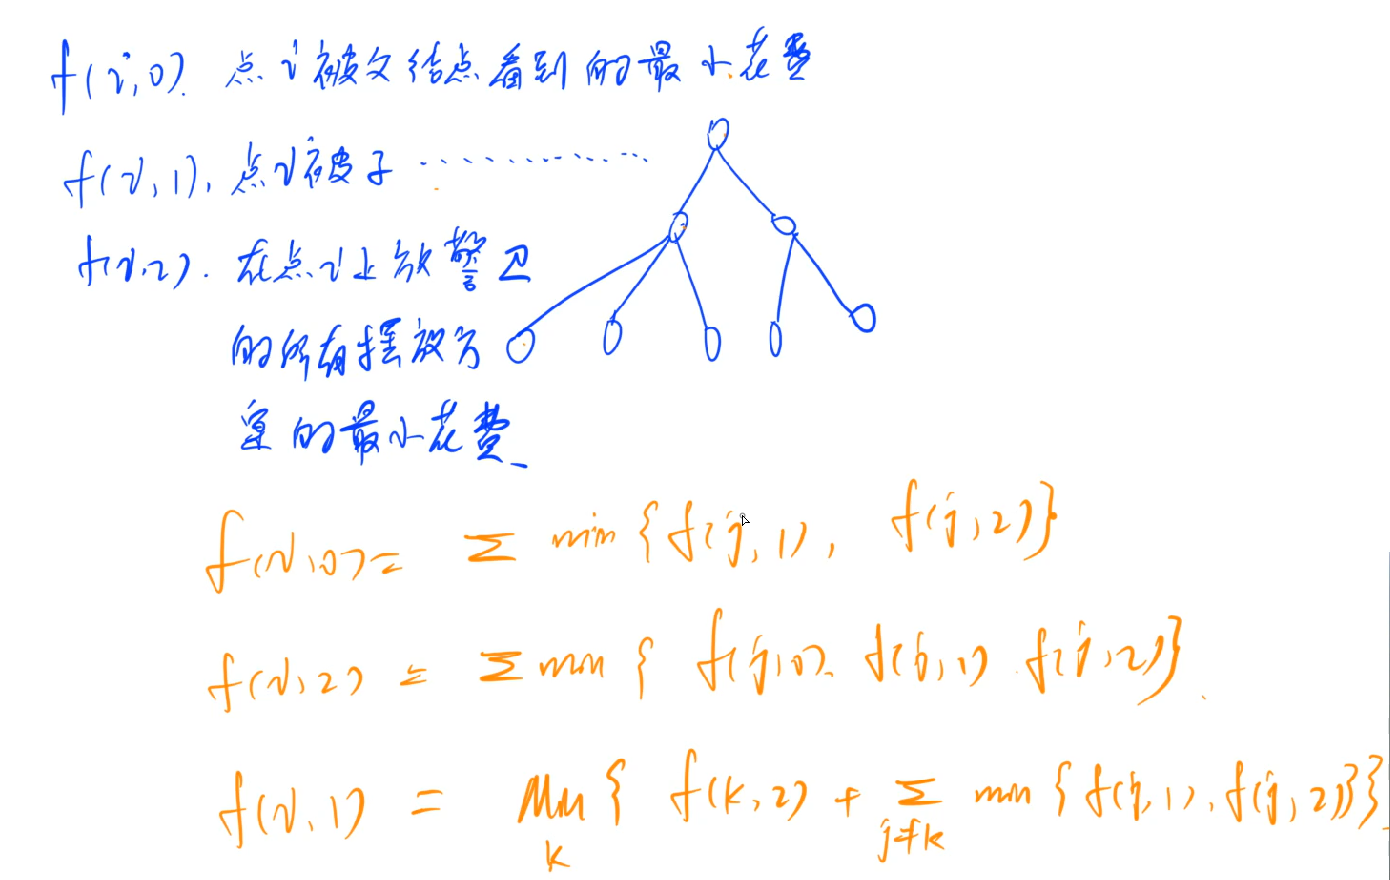 f(i,0). 点i被父结点看到的最小花费
f(i,1), 点i被子 ..............
f(i,2). 在点i上放警卫
的所有摆放方
案的最小花费、
f(i,0) = Σ min { f(j,1), f(j,2)}
f(i,2) = Σ min { f(j,0). f(j,1) f(j,2)}
f(i,1) = min { f(k,2) + Σ min { f(j,1), f(j,2)}}
k j≠k